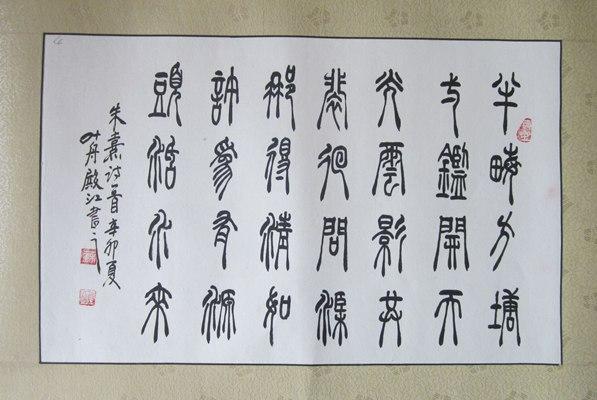 半畮方塘
弌鑑開天
光雲影共
裴徊問渠
那得清如
許為有源
頭活水來
朱熹诗一首辛卯夏
殿江書之